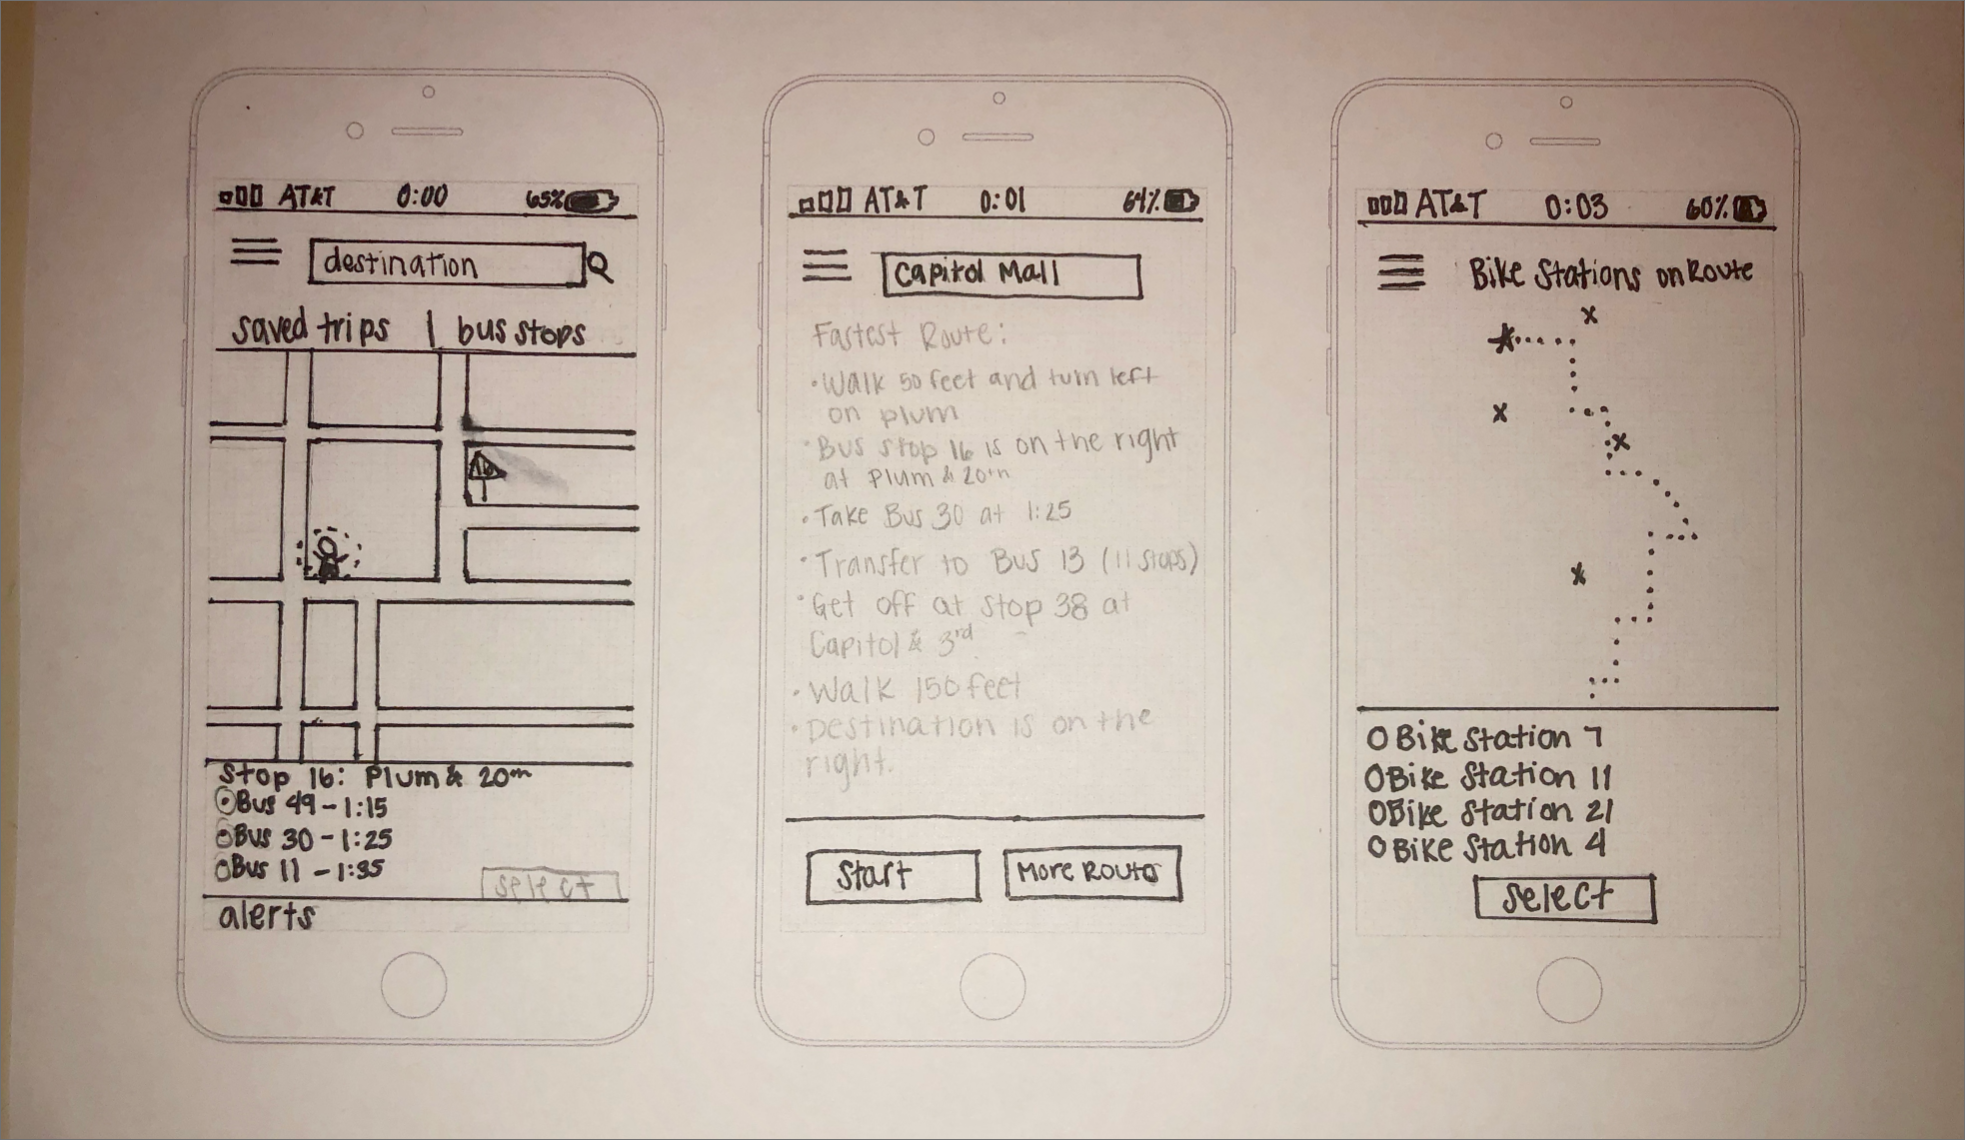 AT&T 0:00 65%
destination
saved trips | bus stops
16
Stop 16: Plum & 20th
Bus 49 - 1:15
Bus 30 - 1:25
Bus 11 - 1:35
select
alerts
AT&T 0:01 64%
Capitol Mall
Fastest Route:
• Walk 50 feet and turn left
on plum
• Bus stop 16 is on the right
at Plum & 20th
• Take Bus 30 at 1:25
• Transfer to Bus 13 (11 stops)
• Get off at stop 38 at
Capitol & 3rd
• Walk 150 feet
• Destination is on the
right.
Start
More Routes
AT&T 0:03 60%
Bike Stations on Route
Bike Station 7
Bike Station 11
Bike Station 21
Bike Station 4
Select